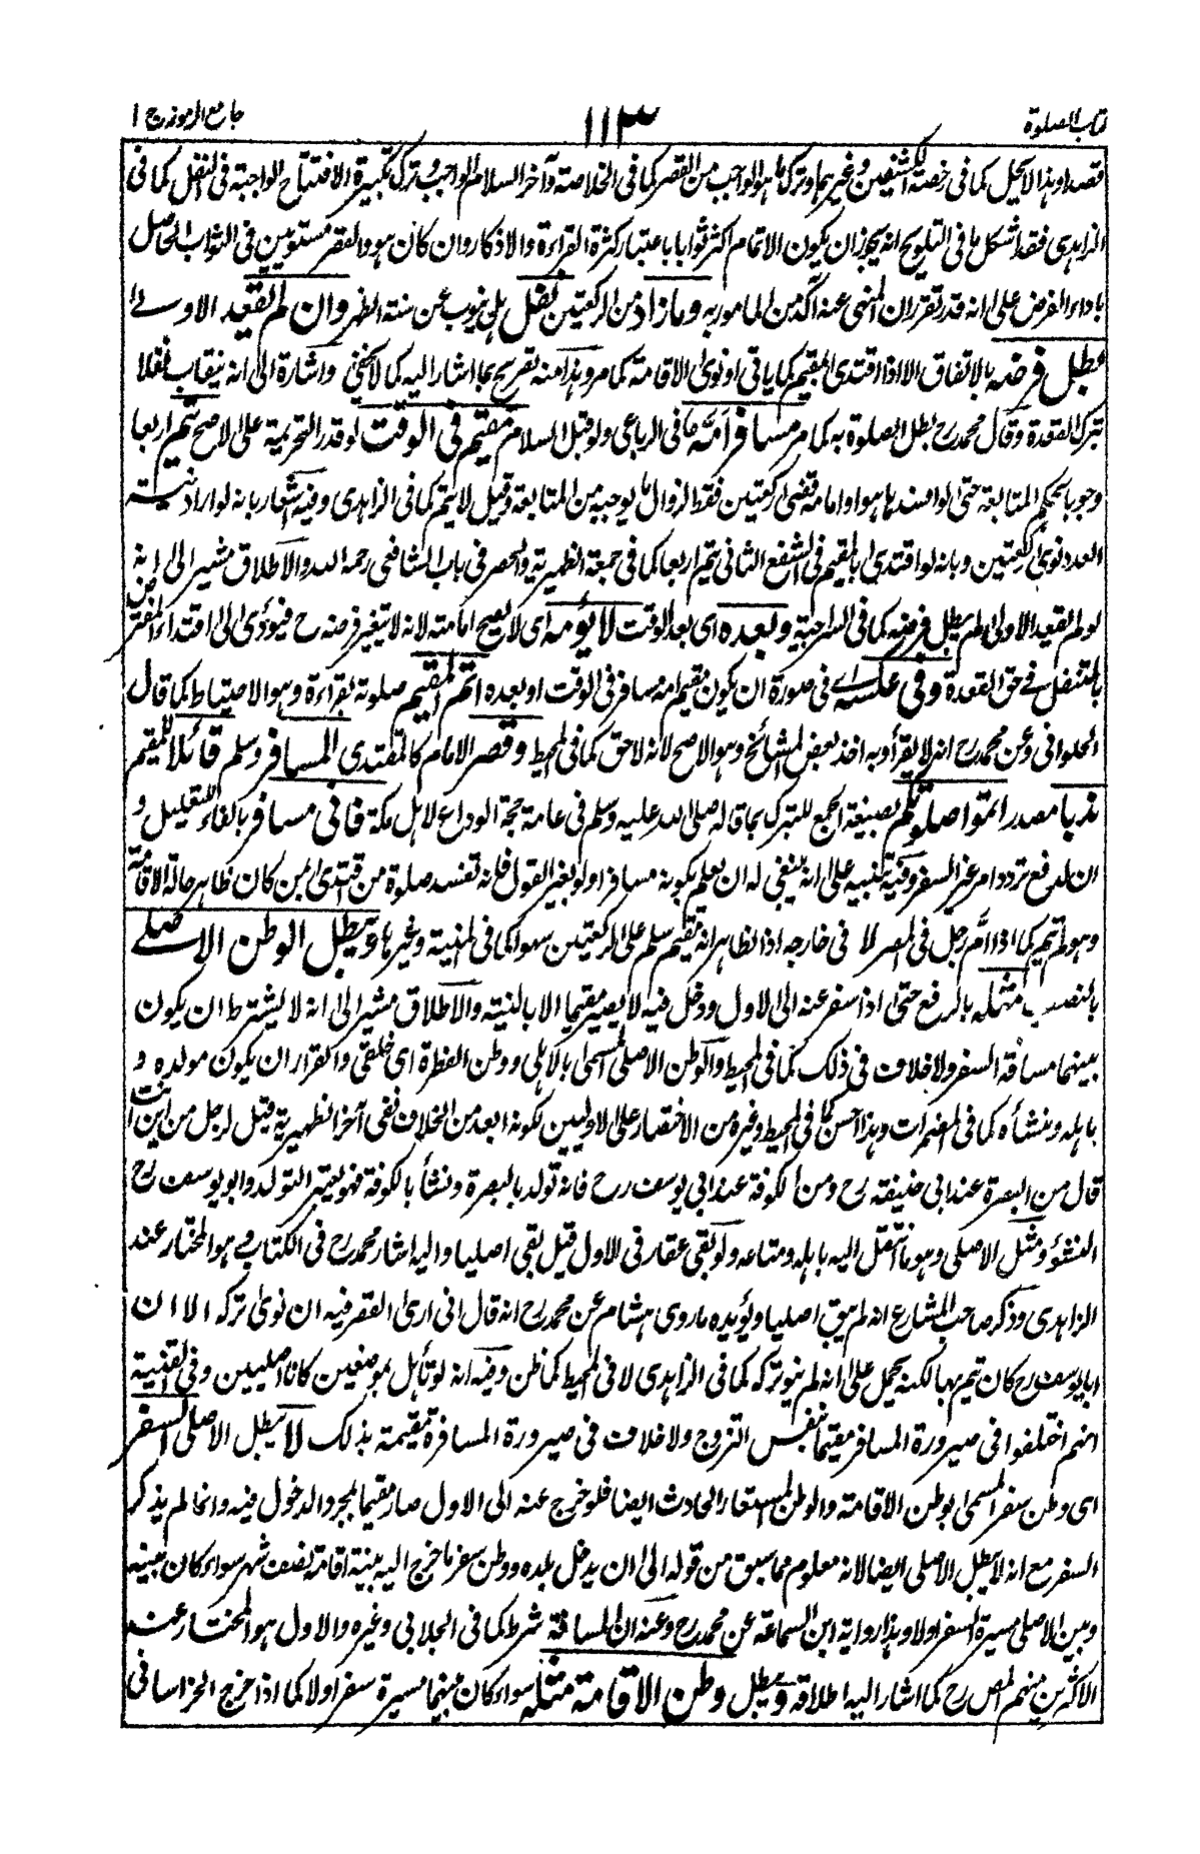 كتاب الصلوة ١١٣ جامع الرموز ج ١
قصدا وهذا لا يحل كما فى خصته الكشفين وغيرهما وترك ما هو الواجب من القصر كما فى الخلاصة وآخر السلام الواجب وترك تكبيرة الافتتاح الواجبة فى النفل كما فى
الزاهدى فقد اشكل ما فى التلويح انه يجوز ان يكون الاتمام اكثر ثوابا باعتبار كثرة القراءة والاذكار وان كان هو والقصر مستويين فى الثواب الحاصل
باداء الفرض على انه قد تقرر ان المنهى عنه آكد من المامور به وما زاد من الركعتين نفل بل ينوب عن سنة الظهر وان لم يقعد الاولى
بطل فرضه بالاتفاق الا اذا اقتدى المقيم كما ياتى او نوى الاقامة كما مر وهذا منه تصريح بما اشار اليه كما لا يخفى واشارة الى انه ينقلب نفلا
بترك القعدة وقال محمد رح بطل الصلوة به كما مر مسافر امه ما فى الرباعى ولو قبل السلام مقيم فى الوقت لو قدر التحريمة على الاصح يتم اربعا
وجوبا بحكم المتابعة حتى لو افسدها هو او امامه قضى ركعتين فقط لزوال ما يوجبه من المتابعة وقيل لا يتم كما فى الزاهدى وفيه اشعار بانه لو اراد نية
العدد نوى ركعتين وبانه لو اقتدى بالمقيم فى الشفع الثانى يتم اربعا كما فى جمعة الظهيرية والحصر فى باب الشافعى رحمه الله والاطلاق مشير الى انه
لو لم يقعد الاولى لم يبطل فرضه كما فى السراجية وبعده اى بعد الوقت لا يؤمه اى لا يصح امامته لانه لا يتغير فرضه ح فيؤدى الى اقتداء المفترض
بالمتنفل فى حق القعدة وفى عكسه اى فى صورة ان يكون مقيم امه مسافر فى الوقت او بعده اتم المقيم صلوته بقراءة وهو الاحتياط كما قال
الحلوانى وعن محمد رح انه لا يقرأ وبه اخذ بعض المشائخ وهو الاصح لانه لاحق كما فى المحيط وقصر الامام كالمقتدى المسافر وسلم قائلا للمقيم
ندبا مصدرا اتموا صلوتكم بصيغة الجمع للتبرك بما قاله صلى الله عليه وسلم فى عامة حجة الوداع لاهل مكة فانى مسافر بالفاء للتعليل و
ان لدفع تردد امر عن السفر وفيه تنبيه على انه ينبغى له ان يعلم بكونه مسافرا ولو بغير القول فانه تفسد صلوة من اقتدى بمن كان ظاهر حاله الاقامة
وهو لم يتم كما اذا ام رجل فى المصر لا فى خارجه اذ الظاهر انه مقيم سلم على الركعتين سهوا كما فى المنية وغيرها ويبطل الوطن الاصلى
بالنصب مثله بالرفع حتى اذا سفر عنه الى الاول ودخل فيه لا يصير مقيما الا بالنية والاطلاق مشير الى انه لا يشترط ان يكون
بينهما مسافة السفر ولا خلاف فى ذلك كما فى المحيط والوطن الاصلى المسمى بالاهلى ووطن الفطرة اى خلقى والقرار ان يكون مولده و
باهله ومنشأه كما فى المضمرات وهذا احسن كما فى المحيط وغيره من الاختصار على الاوليين لكونه ابعد من الخلاف ففى آخر الظهيرية قيل لرجل من اين انت
قال من البصرة عند ابى حنيفة رح ومن الكوفة عند ابى يوسف رح فانه تولد بالبصرة ونشأ بالكوفة فهو يعتبر التولد وابو يوسف رح
النشؤ ومثل الاصلى وهو ما انتقل اليه باهله ومتاعه ولو بقى عقار فى الاول قيل بقى اصليا واليه اشار محمد رح فى الكتاب وهو المختار عند
الزاهدى وذكر صاحب المشارع انه لم يبق اصليا ويؤيده ما روى هشام عن محمد رح انه قال انى ارى القصر فيه ان نوى تركه الا ان
ابا يوسف رح كان يتم بها لكنه يحمل على انه لم ينو تركه كما فى الزاهدى لا فى المحيط كما ظن وفيه انه لو تأهل بموضعين كانا اصليين وفى القنية
انهم اختلفوا فى صيرورة المسافر مقيما بنفس التزوج ولا خلاف فى صيرورة المسافرة مقيمة بذلك لا يبطل الاصلى السفر
اى وطن سفر المسمى بوطن الاقامة والوطن المستعار الحادث ايضا فلو خرج عنه الى الاول صار مقيما بمجرد الدخول فيه وانما لم يذكر
السفر مع انه لا يبطل الاصلى ايضا لانه معلوم مما سبق من قوله الى ان يدخل بلده ووطن سفر ما خرج اليه بنية اقامة نصف شهر سواء كان بينه
وبين الاصلى مسيرة السفر اولا وهذا رواية ابن السماعة عن محمد رح وعنه ان المسافة شرط كما فى الجلابى وغيره والاول هو المختار عند
الاكثرين منهم المص رح كما اشار اليه اطلاقه ويبطل وطن الاقامة مثله سواء كان بينهما مسيرة سفر اولا كما اذا خرج الخراسانى